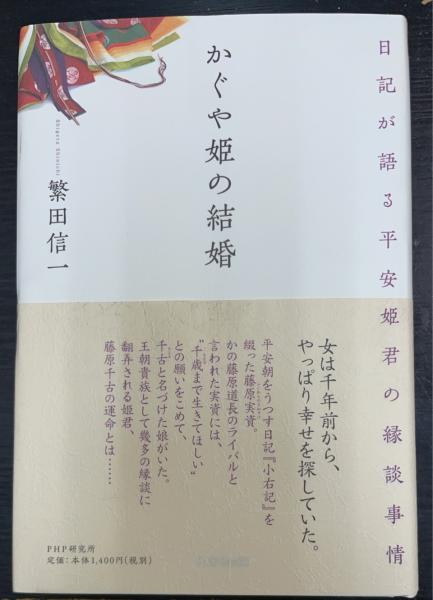 日記が語る平安姫君の縁談事情
かぐや姫の結婚
Shigeta Shinichi
繁田信一
女は千年前から、
やっぱり幸せを探していた。
平安朝をうつす日記『小右記』を
綴った藤原実資。
かの藤原道長のライバルと
言われた実資には、
“千歳まで生きてほしい”
との願いをこめて、
千古と名づけた娘がいた。
王朝貴族として幾多の縁談に
翻弄される姫君、
藤原千古の運命とは……
PHP研究所
定価：本体1,400円(税別)